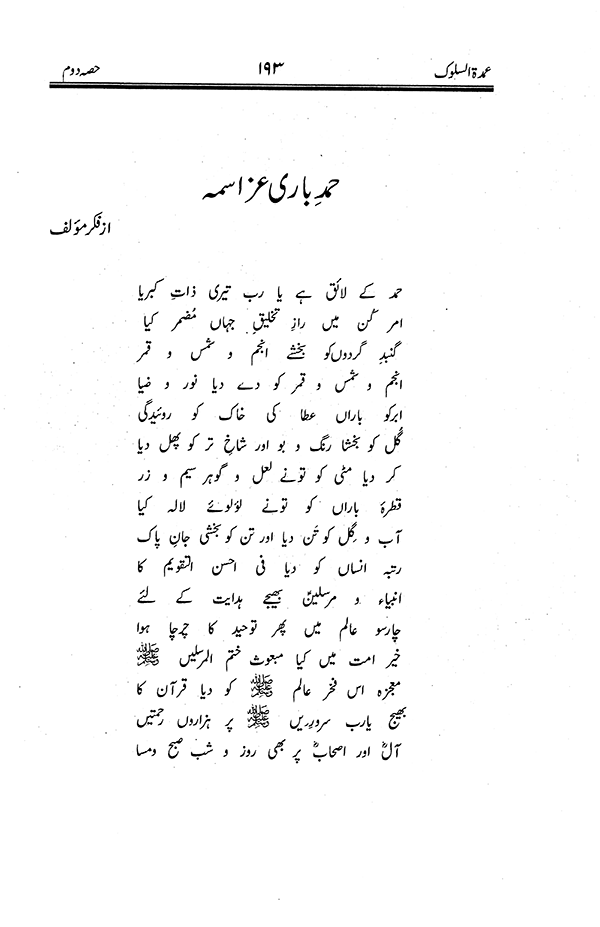 عمدۃ السلوک ۱۹۳ حصہ دوم
حمدِ باری عز اسمہ
از فکر مؤلف
حمد کے لائق ہے یا رب تیری ذاتِ کبریا
امر کُن میں رازِ تخلیقِ جہاں مُضمر کیا
گنبدِ گردوں کو بخشے انجم و شمس و قمر
انجم و شمس و قمر کو دے دیا نور و ضیا
ابرکو باراں عطا کی خاک کو روئیدگی
گُل کو بخشا رنگ و بو اور شاخِ تر کو پھل دیا
کر دیا مٹی کو تونے لعل و گوہر سیم و زر
قطرۂ باراں کو تونے لؤلوئے لالہ کیا
آب و گِل کو تَن دیا اور تن کو بخشی جانِ پاک
رتبہ انساں کو دیا فی احسن التقویم کا
انبیاء و مرسلینؑ بھیجے ہدایت کے لئے
چارسو عالم میں پھر توحید کا چرچا ہوا
خیر امت میں کیا مبعوث ختم المرسلیں ﷺ
معجزہ اس فخر عالم ﷺ کو دیا قرآن کا
بھیج یارب سرورِیں ﷺ پر ہزاروں رحمتیں
آلؓ اور اصحابؓ پر بھی روز و شب صبح ومسا